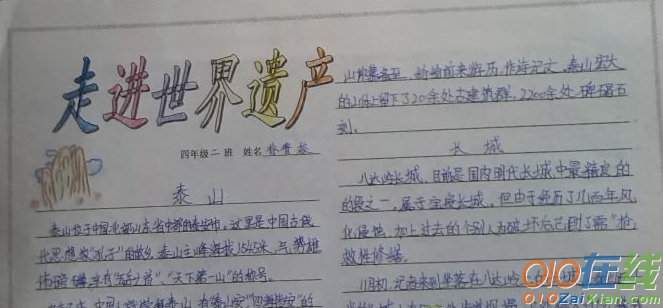 走进世界遗产
四年级二班 姓名 徐
泰山
泰山位于中国北部山东省中部的泰安市。这里是中国古代
思想家"孔子"的故乡,泰山主峰海拔1545米,气势雄
伟 ,有"五岳之首"、"天下第一山"的称号。
中国 泰山,有泰山安"四海皆安"的
山 慕名 ,纷纷前来游历,作诗记文,泰山宏大
的山体上留下了20余处古建筑群,2200余处碑碣石
刻。
长城
八达岭长城,目前是国内明代长城中最精良的
的段之一,属于 长城,但由于经历了几百年风
化侵蚀,加上过去的个别人为破坏后已到了需"抢
救性修缮。
11月初,记者来到坐落在八达岭
010在线
010ZaiXian.Com